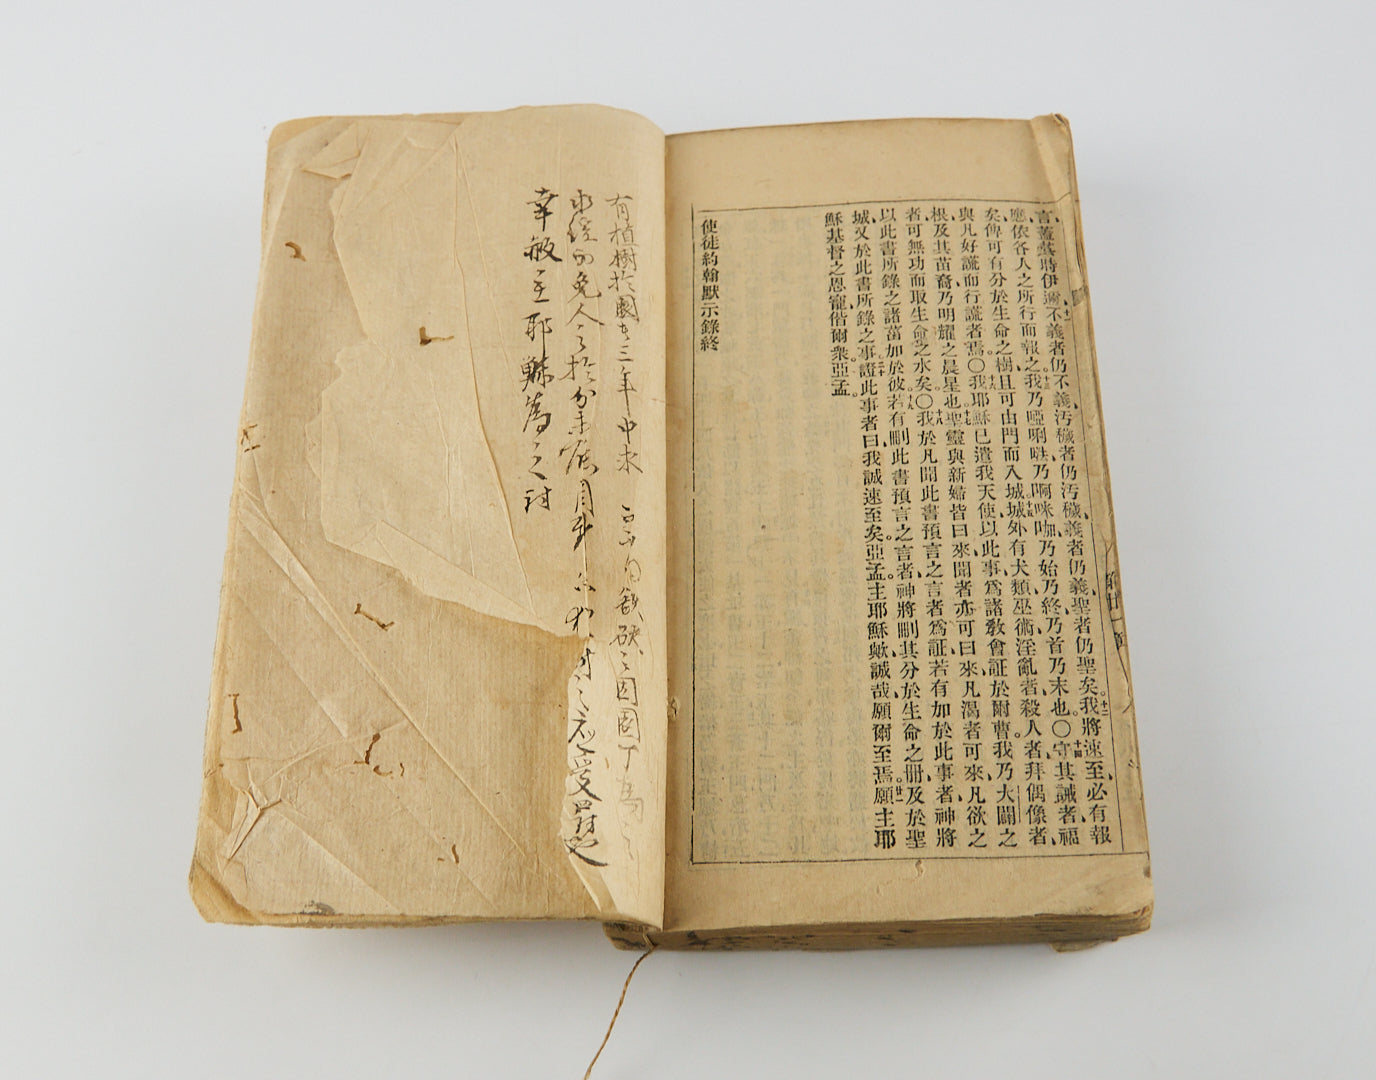 言蓋其時伊邇、十一不義者仍不義、汚穢者仍汚穢、義者仍義、聖者仍聖矣。十二我將速至、必有報
應、依各人之所行而報之、十三我乃啞唎㖠、乃啊咪咖、乃始乃終、乃首乃末也。〇十四守其誡者、福
矣、俾可有分於生命之樹、且可由門而入城、十五城外有犬類、巫術、淫亂者、殺人者、拜偶像者、
與凡好謊而行謊者焉。〇十六我耶穌已遣我天使、以此事爲諸敎會証於爾曹。我乃大闢之
根、及其苗裔、乃明耀之晨星也。十七聖靈與新婦皆曰來、聞者亦可曰來、凡渴者可來、凡欲之
者、可無功而取生命之水矣。〇十八我於凡聞此書預言之言者爲証、若有加於此事者、神將
以此書所錄之諸菑加於彼、十九若有刪此書預言之言者、神將刪其分於生命之冊、及於聖
城、又於此書所錄之事。二十證此事者曰、我誠速至矣。亞孟。主耶穌歟、誠哉、願爾至焉。廿一願主耶
穌基督之恩寵、偕爾衆、亞孟。
使徒約翰默示錄終
有植樹於園 三年中求 自欲砍 園
免人之於分 月 之 受罪
幸敏主耶穌爲之討